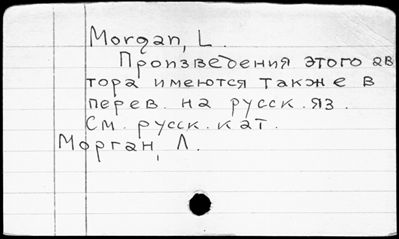 Morgan, L.
Произведения этого ав
тора имеются также в
перев. на русск. яз.
См. русск. кат.
Морган, Л.